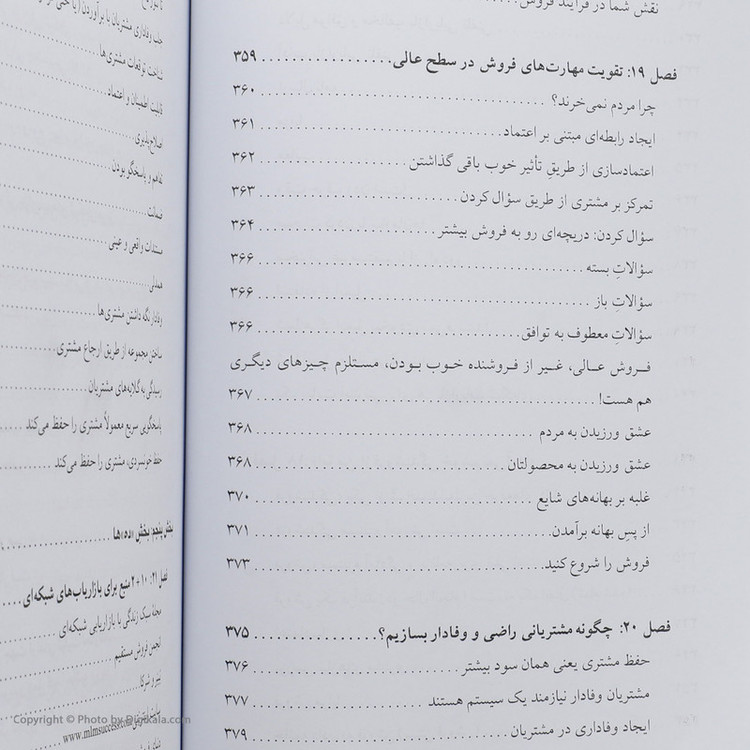 نقش شما در فرآیند فروش
فصل ۱۹: تقویت مهارت‌های فروش در سطح عالی ۳۵۹
چرا مردم نمی‌خرند؟ ۳۶۰
ایجاد رابطه‌ای مبتنی بر اعتماد ۳۶۱
اعتمادسازی از طریقِ تأثیر خوب باقی گذاشتن ۳۶۲
تمرکز بر مشتری از طریق سؤال کردن ۳۶۳
سؤال کردن: دریچه‌ای رو به فروش بیشتر ۳۶۴
سؤالاتِ بسته ۳۶۶
سؤالاتِ باز ۳۶۶
سؤالات معطوف به توافق ۳۶۶
فروش عالی، غیر از فروشنده خوب بودن، مستلزم چیزهای دیگری
هم هست! ۳۶۷
عشق ورزیدن به مردم ۳۶۸
عشق ورزیدن به محصولتان ۳۶۸
غلبه بر بهانه‌های شایع ۳۷۰
از پسِ بهانه برآمدن ۳۷۱
فروش را شروع کنید ۳۷۳
فصل ۲۰: چگونه مشتریانی راضی و وفادار بسازیم؟ ۳۷۵
حفظ مشتری یعنی همان سود بیشتر ۳۷۶
مشتریان وفادار نیازمند یک سیستم هستند ۳۷۷
ایجاد وفاداری در مشتریان ۳۷۹
شناخت توقعات مشتری‌ها
قابلیت اطمینان و اعتماد
صلاح‌پذیری
تفاهم و پاسخگو بودن
ضمانت
مستندات واقعی و عینی
همدلی
وفادار نگه داشتن مشتری‌ها
ساختن مجموعه از طریق ارجاع مشتری
رسیدگی به گلایه‌های مشتریان
پاسخگویی سریع معمولاً مشتری را حفظ می‌کند
حفظ خونسردی، مشتری را حفظ می‌کند
بخش پنجم: بخش «ده»ها
فصل ۲۱: ۱۰+۲ منبع برای بازاریاب‌های شبکه‌ای
مجله سبک زندگی با بازاریابی شبکه‌ای
انجمن فروش مستقیم
Copyright © Photo by Digikala.com